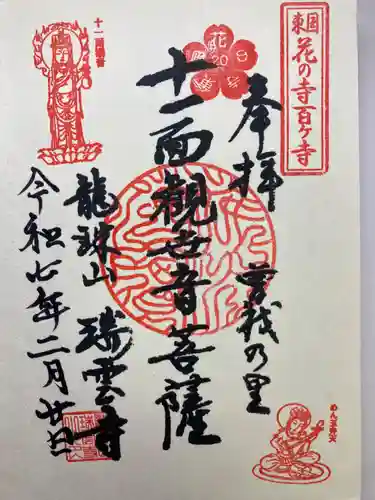 東国
花の寺百ケ寺
奉拝
曽我の里
十一面観世音菩薩
龍珠山 瑞雲寺
令和七年二月廿日
十一面観音
花
20